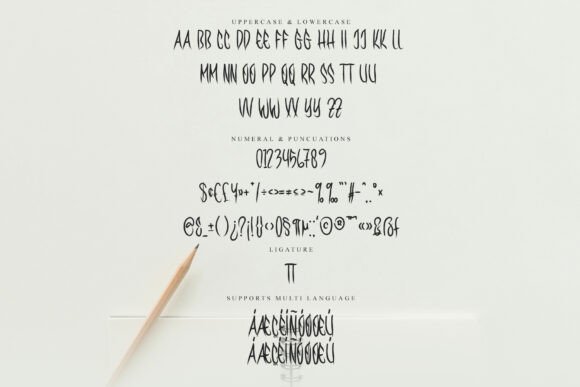 UPPERCASE & LOWERCASE
AA BB CC DD EE FF GG HH II JJ KK LL
MM NN OO PP QQ RR SS TT UU
VV WW XX YY ZZ
NUMERAL & PUNCUATIONS
0123456789
$¢€£¥¤+*/÷<>=≠≤≥~%‰"'#-^.,°×
@&_±()¿?¡!{}‹›0§¶µ:;'©®™"«»ßſƒ
LIGATURE
TT
SUPPORTS MULTI LANGUAGE